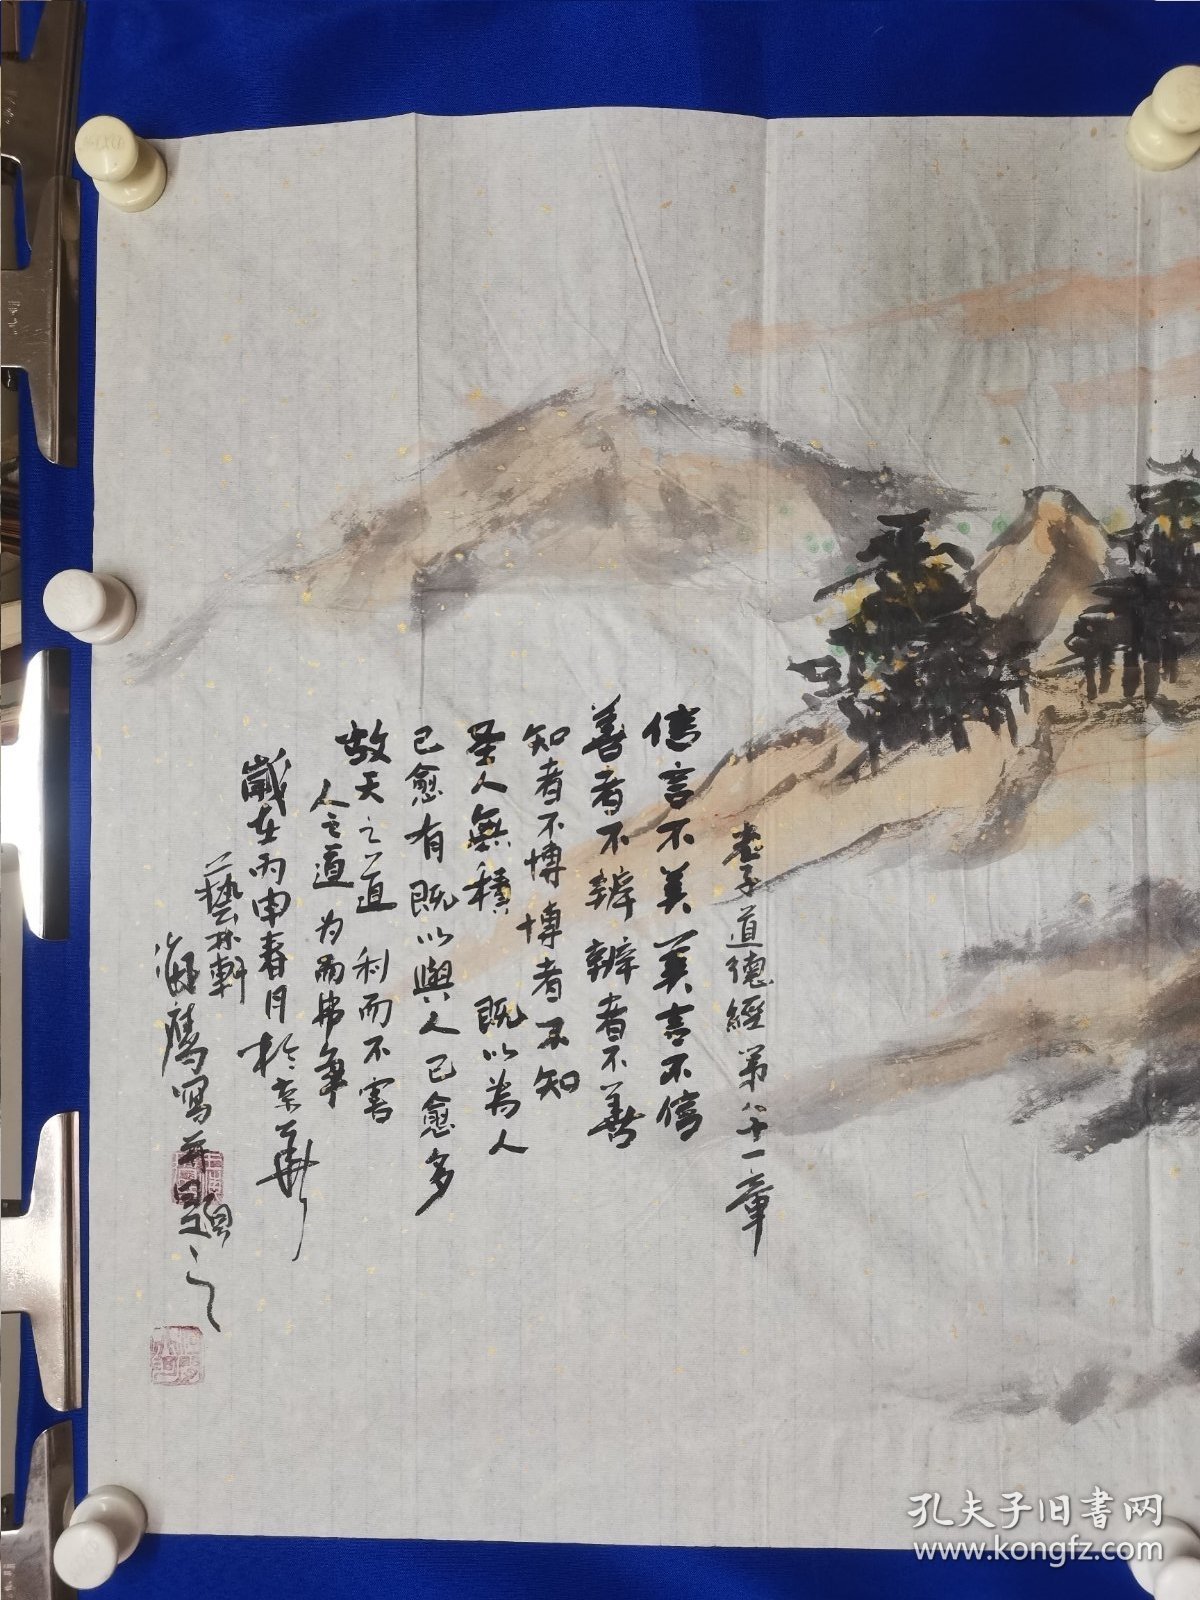 老子道德經第八十一章
信言不美 美言不信
善者不辨 辨者不善
知者不博 博者不知
圣人無積 既以為人
己愈有 既以與人己愈多
故天之道 利而不害
人之道 为而弗争
歲在丙申春月於京華
藝林軒
海鹰寫并題之
孔夫子旧书网
www.kongfz.com